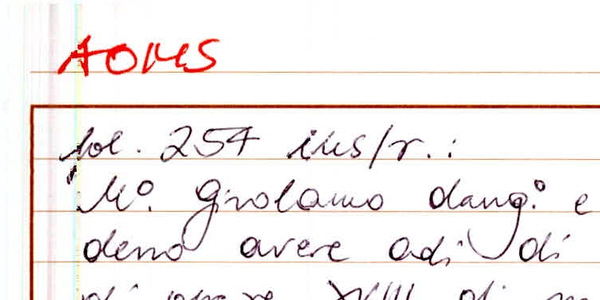 AOMS
fol. 254 ins/r.:
Mº. Girolamo dang:º e
deno avere adi di
di